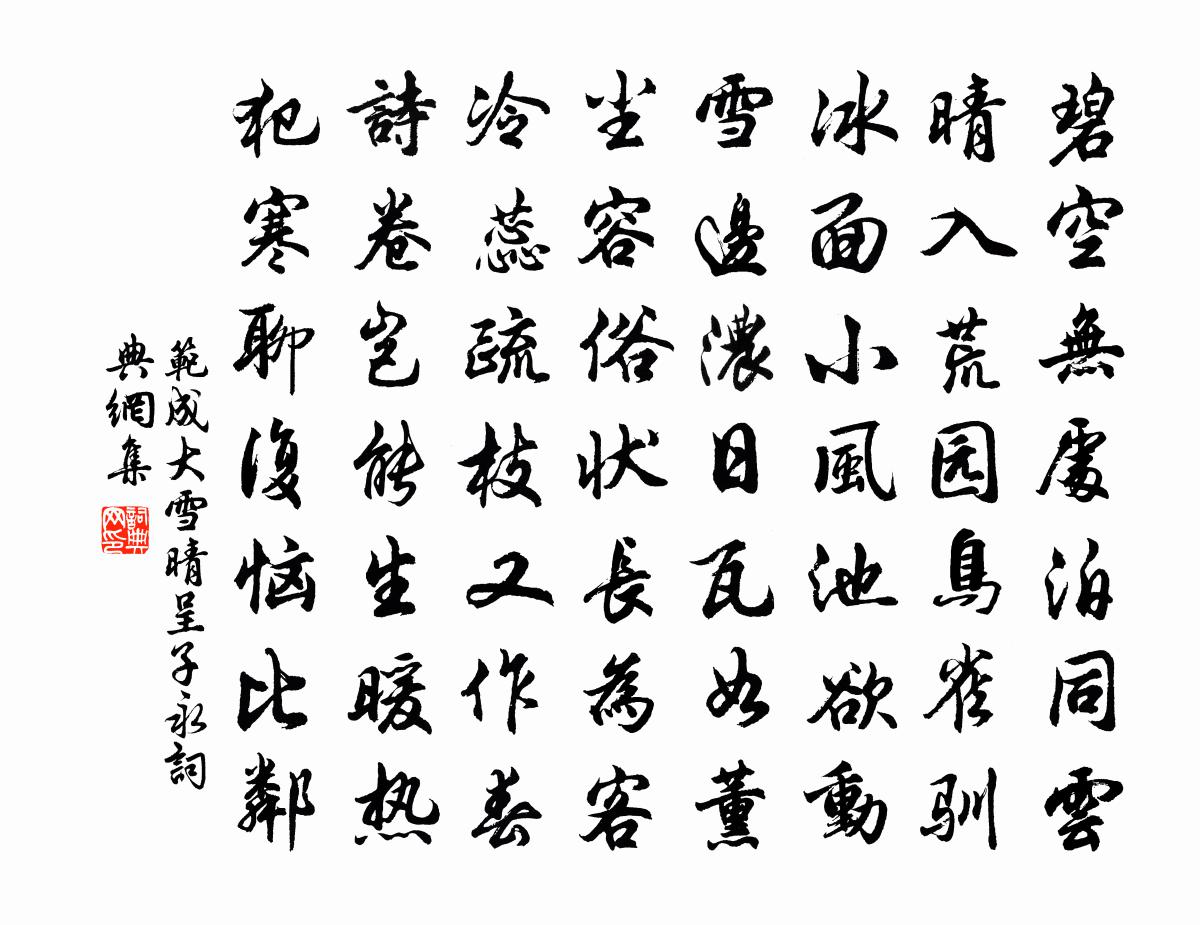 碧空無處泊同雲
晴入荒园鳥雀馴
冰面小風池欲動
雪邊濃日瓦如薰
尘容俗状長為客
冷蕊疏枝又作春
詩卷岂能生暖热
犯寒聊復恼比鄰
範成大雪晴呈子永詞
典網集
詞典网印